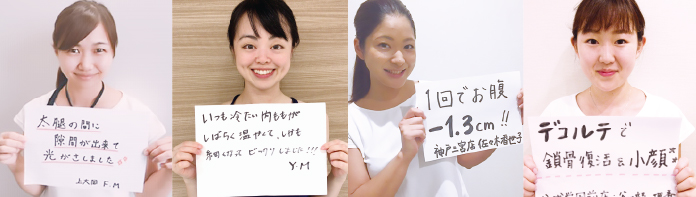 太腿の間に
隙間が出来て
光がさしました
上大岡 F.M
いつも冷たい内ももが
しばらく温かくて、しかも
細くなって ビックリしました!!!
Y.M
1回でお腹
-1.3cm!!
神戸三宮店 佐々木
デコルテで
鎖骨復活&小顔